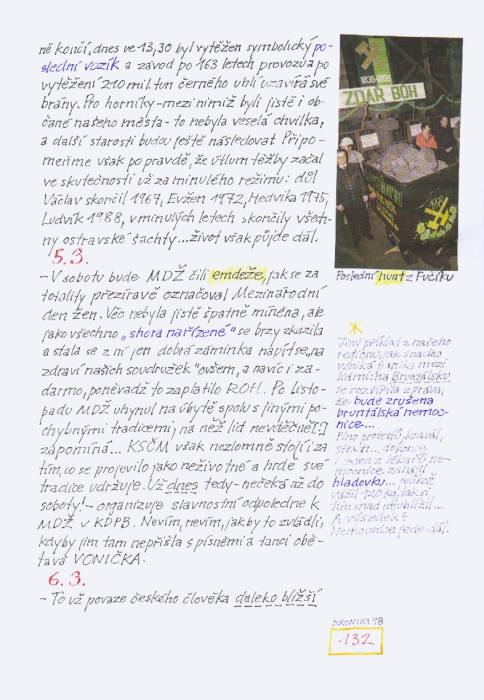 ně končí, dnes ve 13,30 byl vytěžen symbolický po-
slední vozík a závod po 163 letech provozu a po
vytěžení 210 mil. tun černého uhlí uzavírá své
brány. Pro horníky - mezi nimiž byli jistě i ob-
čané našeho města - to nebyla veselá chvilka,
a další starosti budou ještě následovat. Připo-
meňme však po pravdě, že útlum těžby začal
ve skutečnosti už za minulého režimu: důl
Václav skončil 1967, Evžen 1972, Hedvika 1975,
Ludvík 1988, v minulých letech skončily všech-
ny ostravské šachty... život však půjde dál.
5.3.
- V sobotu bude MDŽ čili emdeže, jak se za
totality přezíravě označoval Mezinárodní
den žen. Věc nebyla jistě špatně míněna, ale
jako všechno "shora nařízené" se brzy zkazila
a stala se z ní jen dobrá záminka napít se "na
zdraví našich soudružek" ovšem, a navíc i za-
darmo, poněvadž to zaplatilo ROH. Po listo-
padu MDŽ uhynul na úbytě spolu s jinými po-
chybnými tradicemi, na něž lid nevděčně(!)
zapomíná... KSČM však nezlomně stojí i za
tím, co se projevilo jako neživotné a hrdě své
tradice udržuje. Už dnes tedy - nečeká až do
soboty! - organizuje slavnostní odpoledne k
MDŽ v KDPB. Nevím, nevím, jak by to zvládli,
kdyby jim tam nepřišla s písněmi a tanci obě-
tavá VONIČKA.
6.3.
- To už povaze českého člověka daleko bližší
1835-1998
ZDAŘ BŮH
Poslední hunt z Fučíku
Jiný příklad z našeho
regionu, jak snadno
vzniká panika mezi
lidmi: na Bruntálsku
se rozšířila zpráva,
že bude zrušena
bruntálská nemoc-
nice...
Plno protestů,
hladovku...
A výsledek?
Nemocnice jede dál.
KRONIKA 98
-132